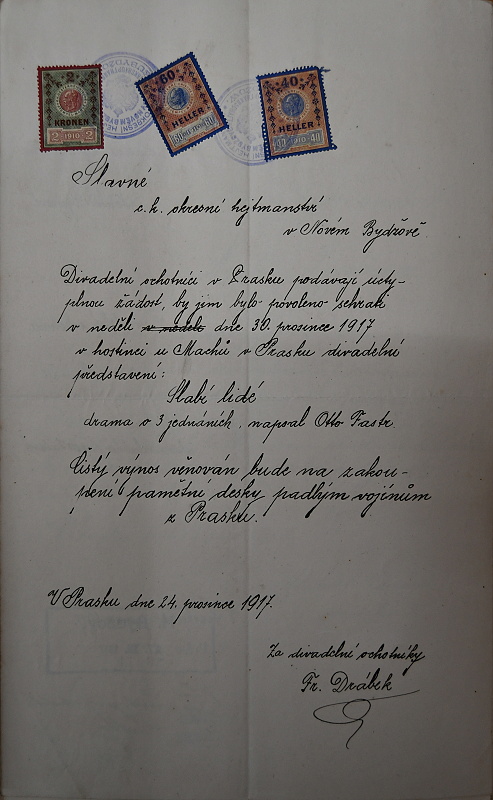 2
KRONEN
2 1910 2
60
HELLER
60 1910 60
40
HELLER
40 1910 40
Slavné
c. k. okresní hejtmanství
v Novém Bydžově
Divadelní ochotníci v Prasku podávají úcty-
plnou žádost, by jim bylo povoleno sehrati
v neděli v neděli dne 30. prosince 1917
v hostinci u Machů v Prasku divadelní
představení:
Slabí lidé
drama o 3 jednáních, napsal Otto Fastr.
Čistý výnos věnován bude na zakou-
pení pamětní desky padlým vojínům
z Prasku.
V Prasku dne 24. prosince 1917.
Za divadelní ochotníky
Fr. Drábek